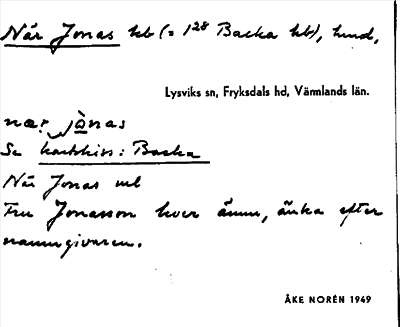 När Jonas hb (= 1²⁸ Backa hb), hmd,
Lysviks sn, Fryksdals hd, Värmlands län.
næ̣r jònas
Se Backa
När Jonas ml
Fru Jonasson bor ännu, änka efter
namngivaren.
ÅKE NORÉN 1949